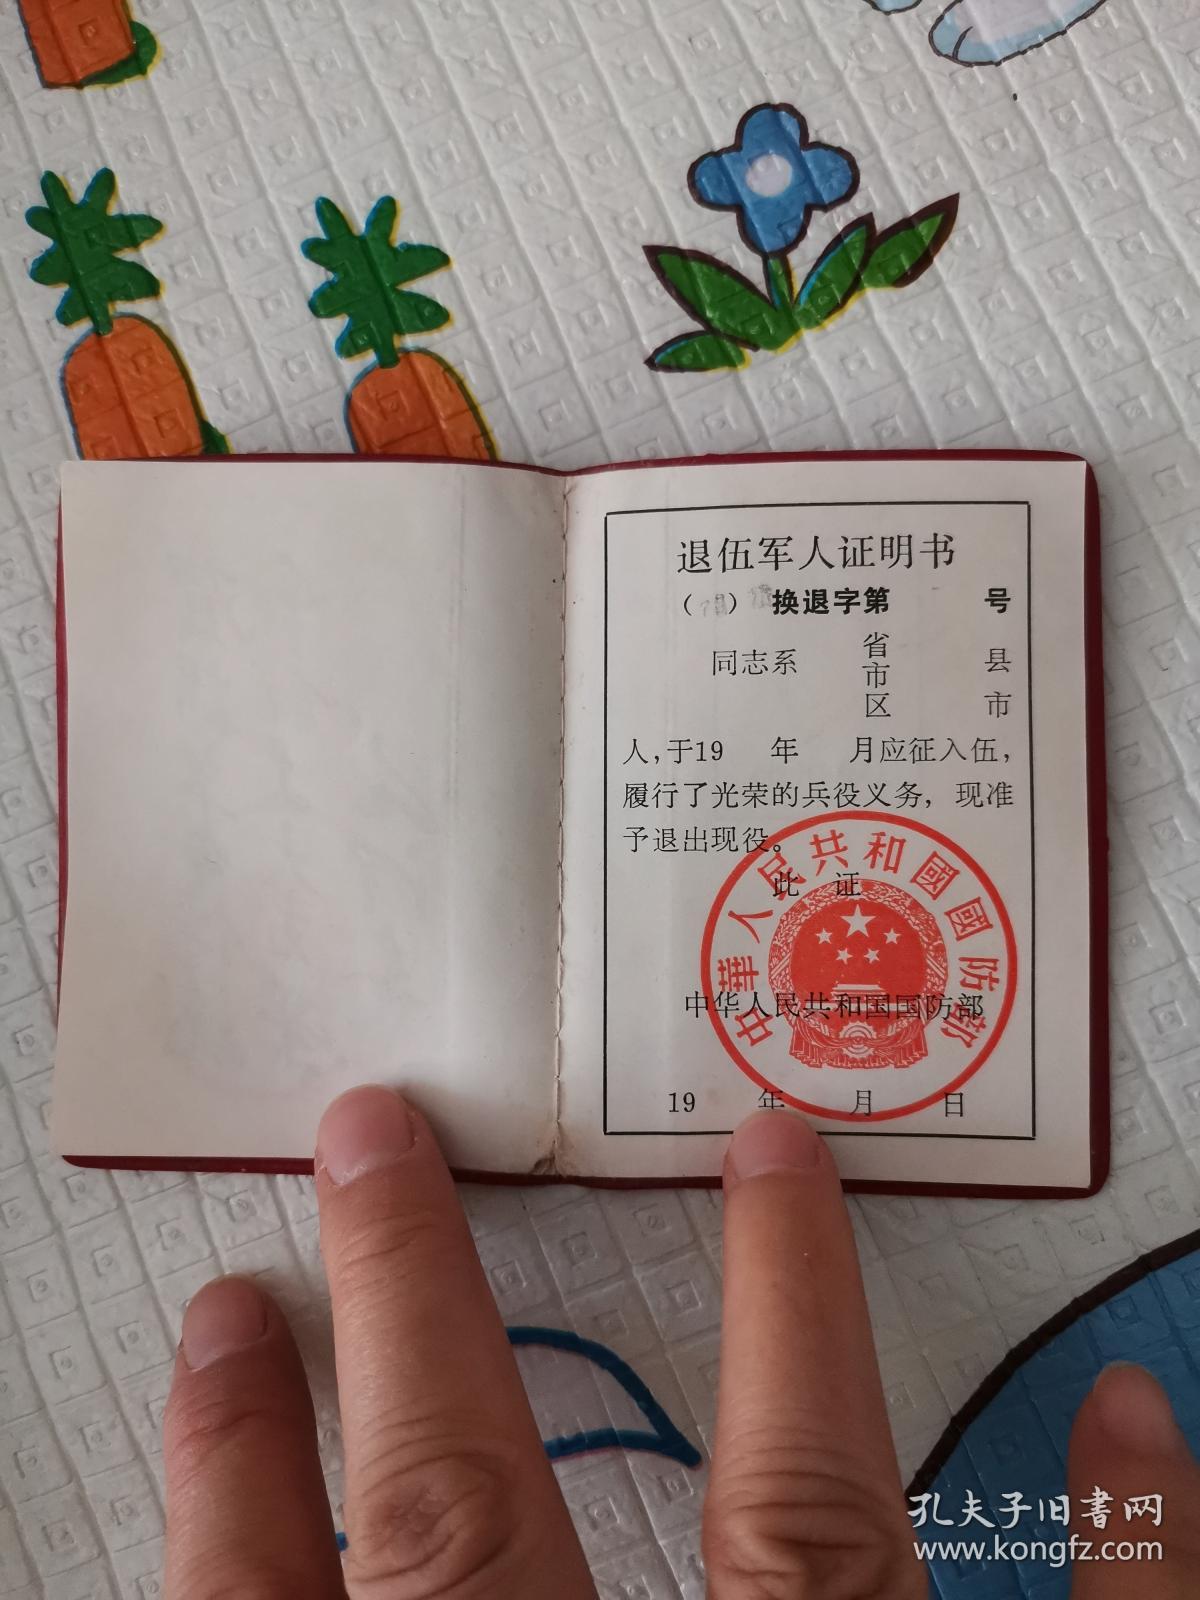 退伍军人证明书
（ ） 换退字第 号
同志系 省市区 县市
人，于19 年 月应征入伍，
履行了光荣的兵役义务，现准
予退出现役。
此 证
中華人民共和國國防部
中华人民共和国国防部
19 年 月 日
孔夫子旧书网
www.kongfz.com